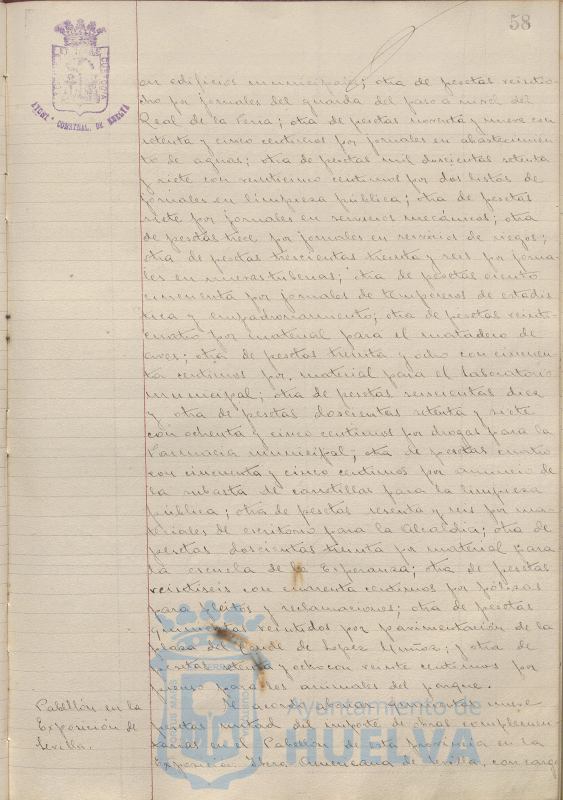 58
AYUNT. CONSTNAL. DE HUELVA
en edificios municipales; otra de pesetas veintio-
cho por jornales del guarda del paso a nivel del
Real de la Feria; otra de pesetas noventa y nueve con
setenta y cinco centimos por jornales en abastecimien-
to de aguas; otra de pesetas mil doscientas setenta
y siete con veinticinco centimos por dos listas de
jornales en limpieza pública; otra de pesetas
siete por jornales en servicios mecánicos; otra
de pesetas trece por jornales en servicios de riegos;
otra de pesetas trescientas treinta y seis por jorna-
les en nuevas tuberias; otra de pesetas ciento
cincuenta por jornales de temporeros de estadis-
tica y empadronamiento; otra de pesetas veinti-
cuatro por material para el matadero de
aves; otra de pesetas treinta y ocho con cincuen-
ta centimos por material para el laboratorio
municipal; otra de pesetas seiscientas diez
y otra de pesetas doscientas setenta y siete
con ochenta y cinco centimos por drogas para la
Farmacia municipal; otra de pesetas cuatro
con cincuenta y cinco centimos por anuncio de
la subasta de canastillas para la limpieza
pública; otra de pesetas sesenta y seis por ma-
teriales de escritorio para la Alcaldia; otra de
pesetas doscientas treinta por material para
la escuela de la Esperanza; otra de pesetas
veintiseis con cuarenta centimos por pólizas
para pleitos y reclamaciones; otra de pesetas
quinientas veintidos por pavimentación de la
plaza del Conde de Lopez Muñoz; y otra de
pesetas setenta y ocho con veinte centimos por
pienso para los animales del parque.
Pabellón en la
Exposición de
Sevilla.
Se acordó abonar
pesetas mitad del importe de obras complemen-
tarias en el Pabellón de esta provincia en la
Exposición Ibero Americana de Sevilla, con cargo
Ayuntamiento de
HUELVA